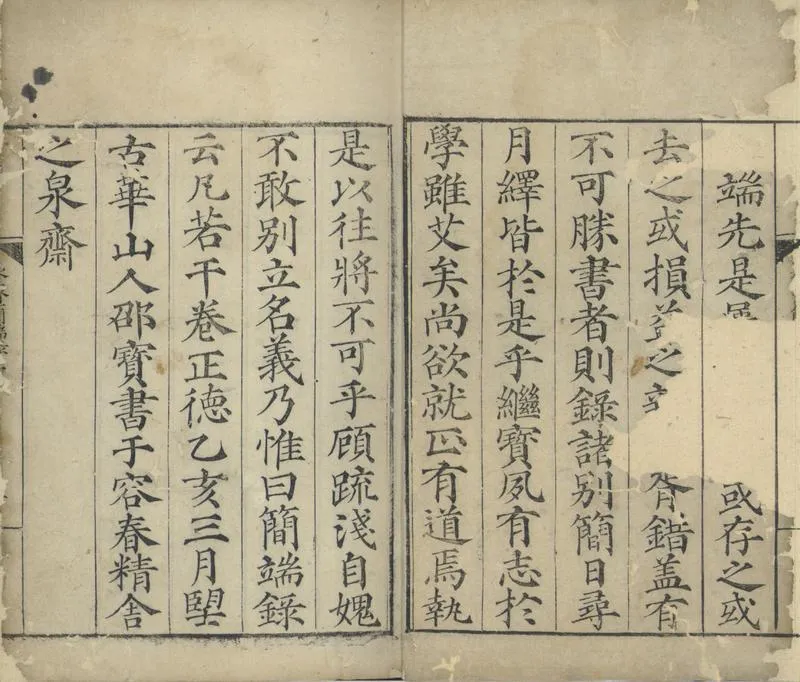 端先是 或存之或
去之或損益之 錯盖有
不可勝書者則錄諸别簡日尋
月繹皆於是乎繼寳夙有志於
學雖艾矣尚欲就正有道焉執
是以徃將不可乎顧疏淺自媿
不敢别立名義乃惟曰簡端錄
云凡若干卷正徳乙亥三月朢
古華山人邵寳書于容春精舎
之泉齋